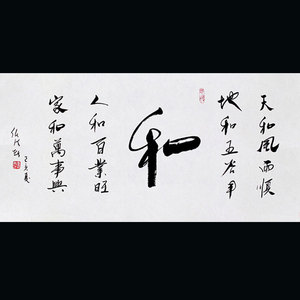 天和風雨順
地和五谷丰
和
人和百業旺
家和萬事興